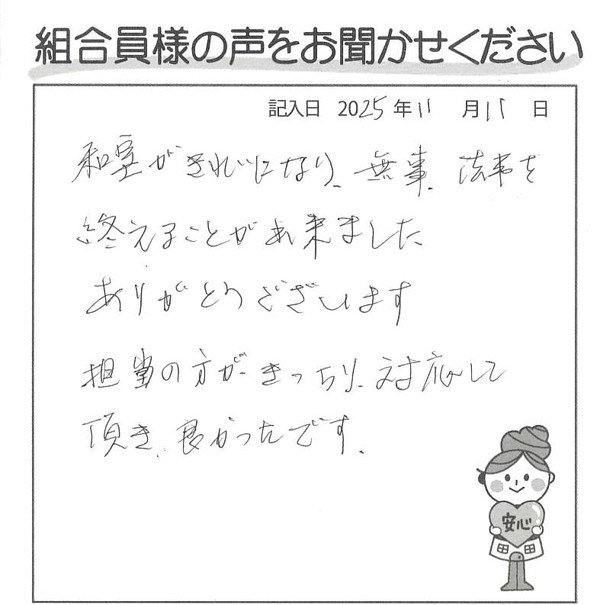 組合員様の声をお聞かせください
記入日 2025年11月11日
和室がきれいになり、無事、法事を
終えることが出来ました
ありがとうございます
担当の方が、きっちり、対応して
頂き、良かったです。
安心